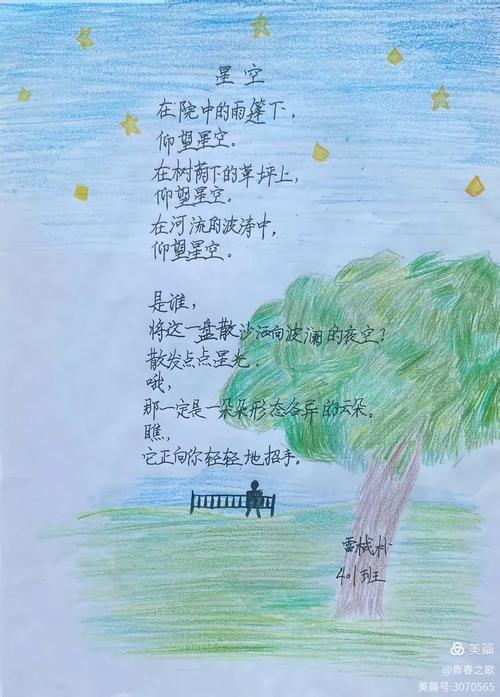 星空
在院中的雨篷下，
仰望星空。
在树荫下的草坪上，
仰望星空。
在河流的波涛中，
仰望星空。
是谁，
将这一盘散沙洒向波澜的夜空？
散发点点星光。
哦，
那一定是一朵朵形态各异的云朵。
瞧，
它正向你轻轻地招手。
雷
401班
美篇
@青春之歌
美篇号:3070565